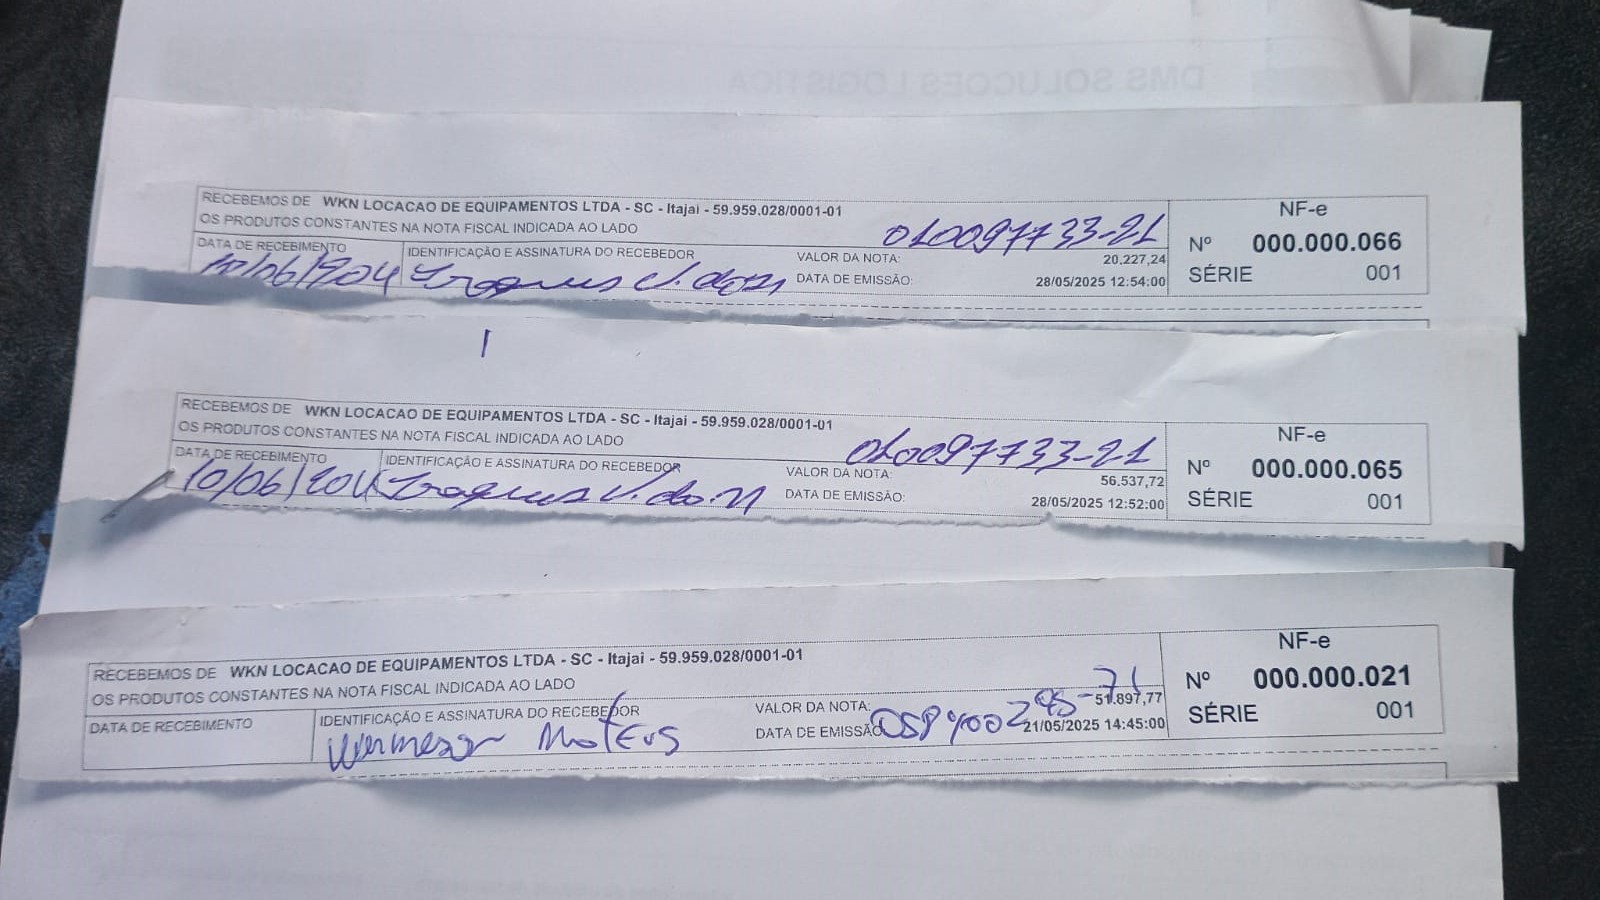 DMS SOLUCOES LOGISTICA
RECEBEMOS DE WKN LOCACAO DE EQUIPAMENTOS LTDA - SC - Itajai - 59.959.028/0001-01
OS PRODUTOS CONSTANTES NA NOTA FISCAL INDICADA AO LADO
010097733-21
DATA DE RECEBIMENTO
10/06/
IDENTIFICAÇÃO E ASSINATURA DO RECEBEDOR
VALOR DA NOTA: 20.227,24
DATA DE EMISSÃO: 28/05/2025 12:54:00
NF-e
Nº 000.000.066
SÉRIE 001
RECEBEMOS DE WKN LOCACAO DE EQUIPAMENTOS LTDA - SC - Itajai - 59.959.028/0001-01
OS PRODUTOS CONSTANTES NA NOTA FISCAL INDICADA AO LADO
010097733-21
DATA DE RECEBIMENTO
10/06/
IDENTIFICAÇÃO E ASSINATURA DO RECEBEDOR
VALOR DA NOTA: 56.537,72
DATA DE EMISSÃO: 28/05/2025 12:52:00
NF-e
Nº 000.000.065
SÉRIE 001
RECEBEMOS DE WKN LOCACAO DE EQUIPAMENTOS LTDA - SC - Itajai - 59.959.028/0001-01
OS PRODUTOS CONSTANTES NA NOTA FISCAL INDICADA AO LADO
DATA DE RECEBIMENTO
IDENTIFICAÇÃO E ASSINATURA DO RECEBEDOR
MATEUS
VALOR DA NOTA: 51.897,77
DATA DE EMISSÃO: 21/05/2025 14:45:00
NF-e
Nº 000.000.021
SÉRIE 001